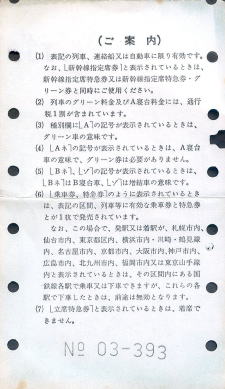 (ご案内)
(1) 表記の列車、連絡船又は自動車に限り有効です。
なお、〔新幹線指定席券〕と表示されているときは、
新幹線指定席特急券又は新幹線指定席特急券・グ
リーン券と同時にご使用ください。
(2) 列車のグリーン料金及びA寝台料金には、通行
税1割が含まれています。
(3) 種別欄に〔A〕の記号が表示されているときは、グリーン
車の意味です。
(4) 〔Aネ〕の記号が表示されているときは、A寝台
車の意味で、グリーン券は必要がありません。
(5) 〔Bネ〕、〔ゾ〕の記号が表示されているときは、
〔Bネ〕はB寝台車、〔ゾ〕は増結車の意味です。
(6) 〔乗車券、特急券〕のように表示されているとき
は、表記の区間、列車等に有効な乗車券と特急券
とが1枚で発売されています。
なお、この場合で、発駅又は着駅が、札幌市内、
仙台市内、東京都区内、横浜市内・川崎・鶴見線
内、名古屋市内、京都市内、大阪市内、神戸市内、
広島市内、北九州市内、福岡市内又は東京山手線
内と表示されているときは、その区間内にある国
鉄線各駅で乗車又は下車できますが、これらの各
駅で下車したときは、前途は無効となります。
(7) 〔立席特急券〕と表示されているときは、着席で
きません。
№ 03-393